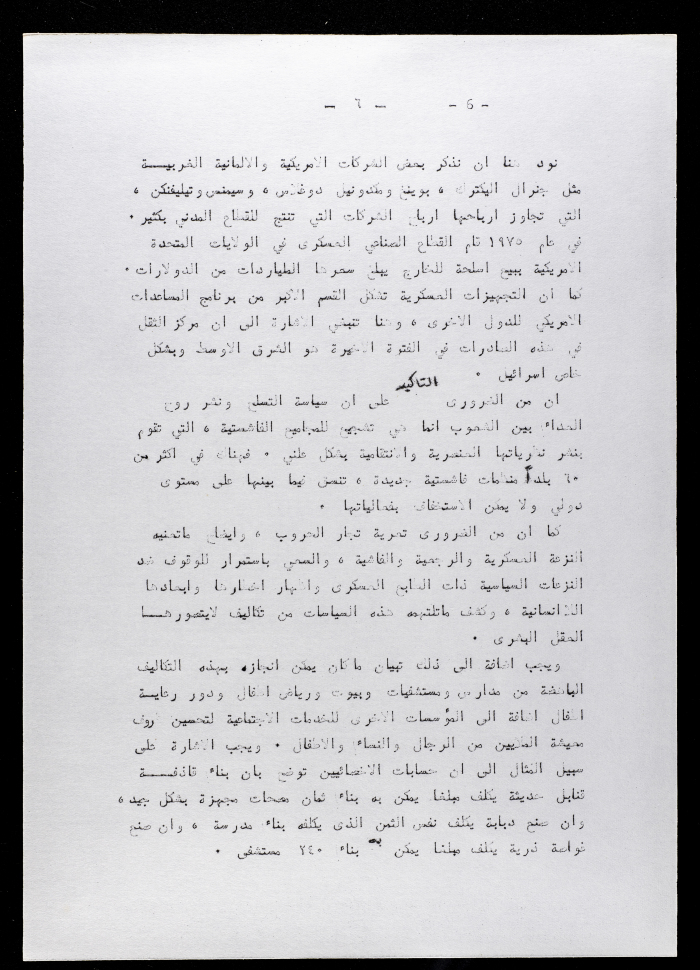 - ٦ -    - 6 -
نود هنا ان نذكر بعض الشركات الامريكية والالمانية الغربيـــة
مثل جنرال اليكترك ، بوينغ ومكدونيل دوغلاس ، وسيمنس وتيليفنكن ،
التي تجاوز ارباحها ارباح الشركات التي تنتج للقطاع المدني بكثير .
في عام ١٩٧٥ قام القطاع الصناعي العسكرى في الولايات المتحدة
الامريكية ببيع اسلحة للخارج يبلغ سعرها المليارات من الدولارات .
كما ان التجهيزات العسكرية تشكل القسم الاكبر من برنامج المساعدات
الامريكي للدول الاخرى ، وهنا تنبغي الاشارة الى ان مركز الثقل
في هذه الصادرات في الفترة الاخيرة هو الشرق الاوسط وبشكل
خاص اسرائيل .
ان من الضرورى التاكيد على ان سياسة التسلح ونشر روح
العداء بين الشعوب انما هي تشجيع للمجاميع الفاشستية ، التي تقوم
بنشر نظرياتها العنصرية والانتقامية بشكل علني . فهناك في اكثر من
٦٠ بلداً منظمات فاشستية جديدة ، تنسق فيما بينها على مستوى
دولي ولا يمكن الاستخفاف بفعالياتها .
كما ان من الضرورى تعرية تجار الحروب ، وايضاح ماتعنيه
النزعة العسكرية والرجعية والفاشية ، والسعي باستمرار للوقوف ضد
النزعات السياسية ذات الطابع العسكرى واظهار اخطارها وابعادها
اللاانسانية ، وكشف ماتلتهمه هذه السياسات من تكاليف لايتصورهـــا
العقل البشرى .
ويجب اضافة الى ذلك تبيان ماكان يمكن انجازه بهذه التكاليف
الباهضة من مدارس ومستشفيات وبيوت ورياض اطفال ودور رعايـــة
اطفال اضافة الى المؤسسات الاخرى للخدمات الاجتماعية لتحسين ظروف
معيشة الملايين من الرجال والنساء والاطفال . ويجب الاشارة على
سبيل المثال الى ان حسابات الاخصائيين توضح بان بناء قاذفـــة
قنابل حديثة يكلف مبلغا يمكن به بناء ثمان مصحات مجهزة بشكل جيد ،
وان صنع دبابة يكلف نفس الثمن الذى يكلفه بناء مدرسة ، وان صنع
غواصة ذرية يكلف مبلغا يمكن به بناء ٢٤٠ مستشفى .